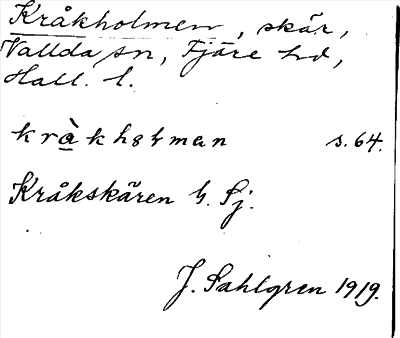 Kråkholmen, skär,
Vallda sn, Fjäre hd,
Hall. l.
kràkhɷlman s. 64.
Kråkskären G. Sj.
J. Sahlgren 1919.